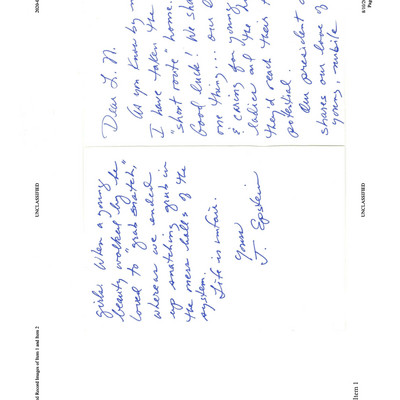 UNCLASSIFIED
Dear L. N.
As you know by
I have taken the
"short route" home.
Good luck! We
one thing... our
& caring for young
ladies and the
they'd reach their
potential.
Our president
shares our love of
young, nubile
Page
Record Images of Item 1 and Item 2
UNCLASSIFIED
girls. When a young
beauty walked by he
loved to "grab snatch,"
whereas we ended
up snatching grub in
the mess halls of the
system.
Life is unfair.
Yours
J. Epstein
UNCLASSIFIED
Item 1